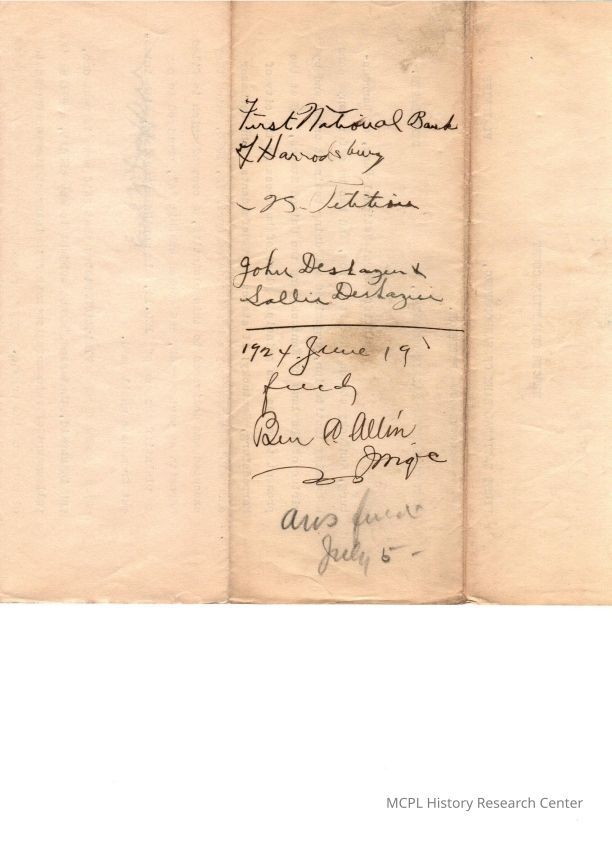 First National Bank
of Harrodsburg
- vs. Petition
John Deshazer &
Sallie Deshazer
1924. June 19
filed
Ben A Allin
ans filed
July 5 -
MCPL History Research Center